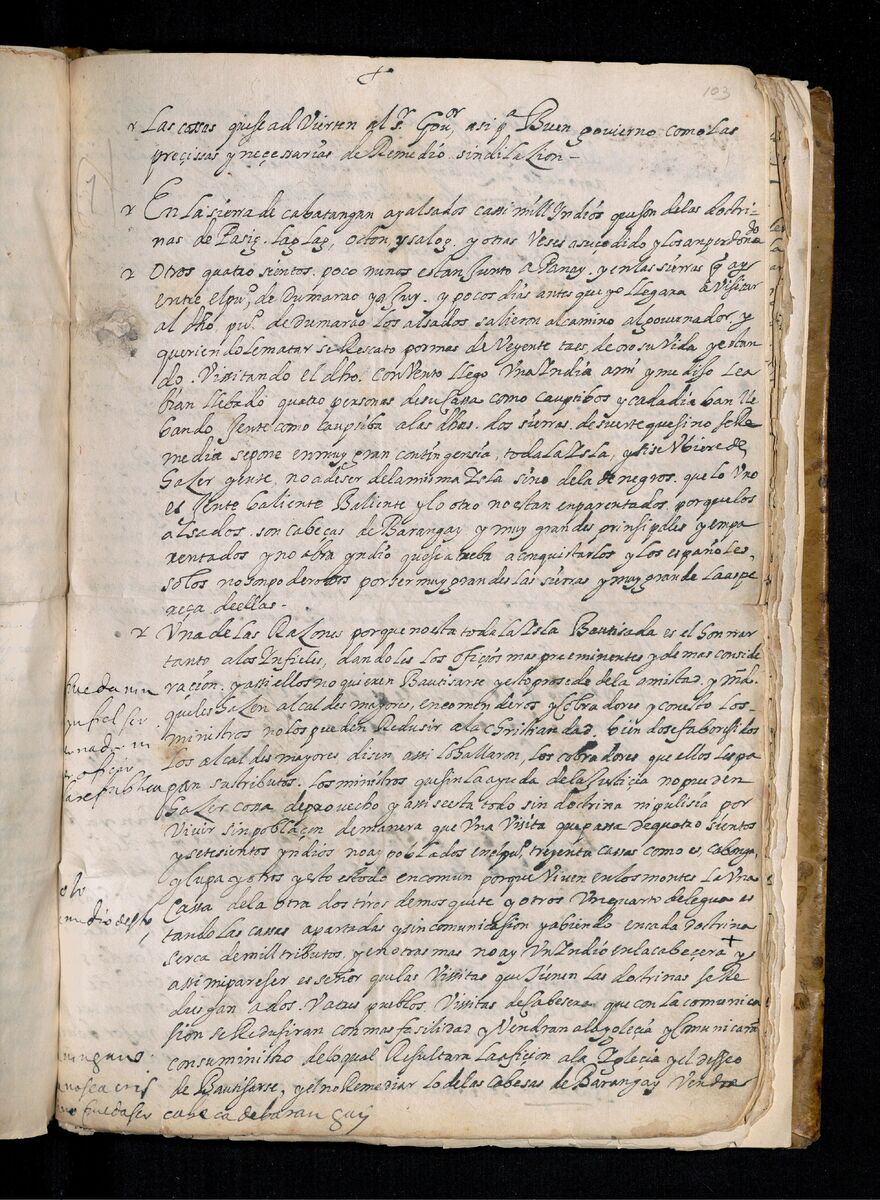 103
Las cossas que se adVierten al Sr Gour, asi pa Buen govierno como Las
preçissas y neçessarias de Remedio sin dilaZion -
En La sierra de cabatangan ay alsados cassi mill Indios que son de las doctri-
nas de Pasig. Lag Lag, Octon, ysalog. y otras Veses a suçedido y los an perdonado
Otros quatro sientos. poco menos estan Junto a Panay. y en las sierras q ay
entre el pu., de Dumarao ya Juy. y pocos dias antes que yo llegara a Visitar
al dho. pu.o de Dumarao Los alsados salieron al camino al governador, y
queriendole matar se Rescato por mas de Veyente taes, de oro su Vida y estan
do. Vissitando el dho. conVento llego Vna India a mi y me dijo Le a
bian llebado quatro personas de su cassa como cauptibos y cada dia ban lle
bando Jente como cauptiba a las dhas. dos sierras. de suerte que si no se Re
media se pone en muy gran contingensia, toda la Isla, y si se Vbiere de
haZer gente, no a de ser de la misma Isla sino de la de negros. que lo Vno
es Jente baliente Baliente y lo otro no estan enparentados. porque los
alsados. son cabeças de Barangay y muy grandes prinsipales y empa
rentados y no abra yndio que se atreba a conquistarlos y los españoles,
solos no son poderosos por ser muy grandes las sierras y muy grande la aspe
reça de ellas.
Vna de las RaZones porque no esta toda la Isla Bautisada es el honrrar
tanto a los Infieles, dandoles los ofiçios mas preeminentes y de mas conside
raçion. y assi ellos no quieren Bautisarse y esto prosede de la amistad. y
que les haZen alcaldes mayores, encomenderos y cobradores y con esto Los
ministros no los pueden Redusir a la christiandad. biendose faboresidos
Los alcaldes mayores, disen assi lo hallaron, los cobradores, que ellos les pa
gan sus tributos. Los ministros que sin la ayuda de la Justicia no pueden
haZer cossa de provecho y assi se esta todo sin doctrina ni pulisia por
Vivir sin poblaçon de manera que Vna Vissita que passa de quatro sientos
y setesientos yndios no ay poblados en el pu.o treyenta cassas como es,
y Lupa y otros y esto es todo en comun porque Viven en los montes La Vna
Cassa de la otra dos tiros de mosquete y otros Vn quarto de legua es
tando las cassas apartadas y sin comunicasion y abiendo en cada doctrina
serca de mill tributos, y en otras mas no ay Vn Indio en la cabeçera y
assi mi pareser es señor que las Vissitas que tienen las doctrinas se Re
dusgan a dos. V a tres pueblos. Vissitas de cabesera que con la comunica
sion se Redusiran con mas fasilidad y Vendran a la yglecia y comunicara
con su ministro de lo qual Resultara la afiçion a la Iglecia y el desseo
de Bautisarse, y el no Remediar lo de las cabesas de Barangay Vendra
cabeça de barangay